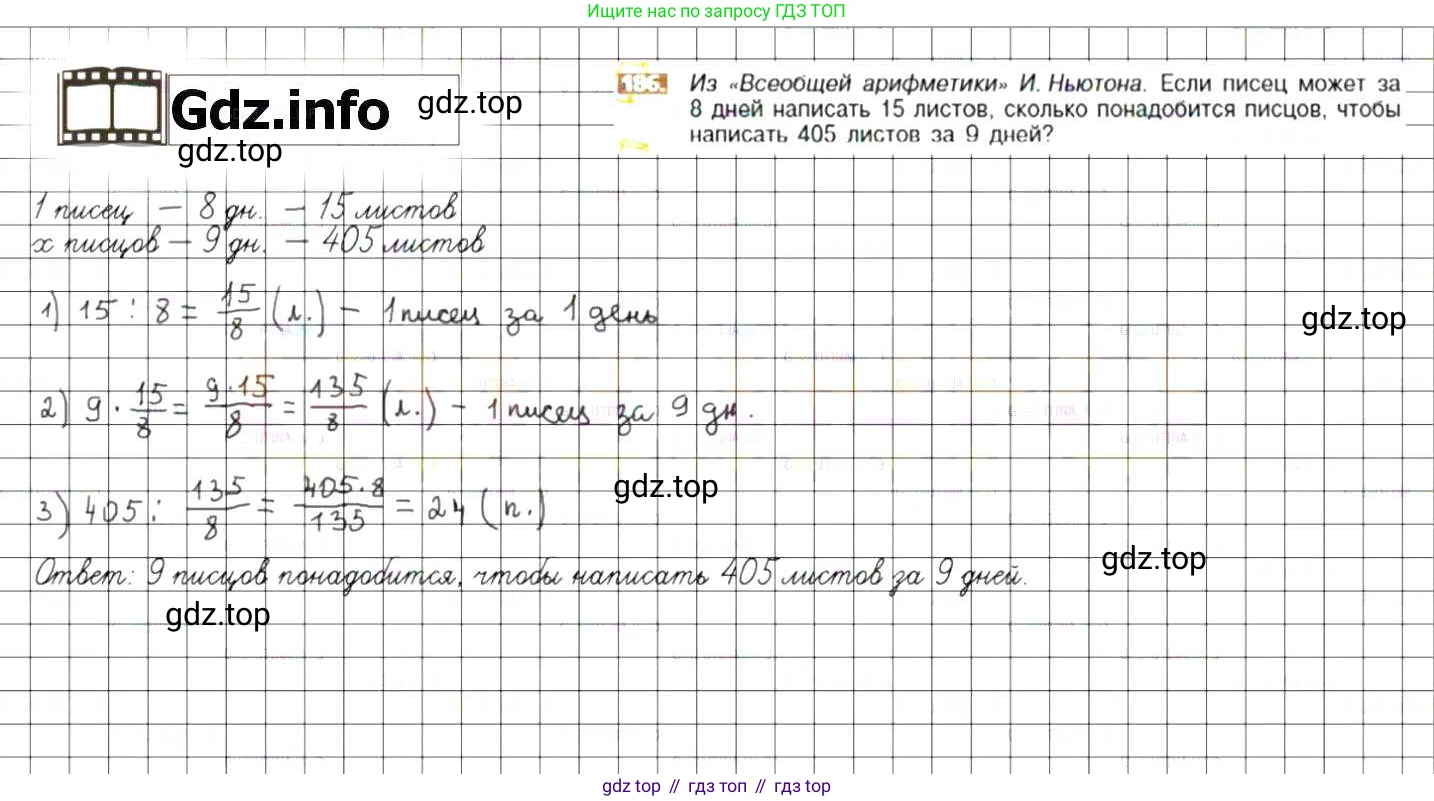 Ищите нас по запросу ГДЗ ТОП
Gdz.info
gdz.top
gdz.top
186. Из «Всеобщей арифметики» И. Ньютона. Если писец может за
8 дней написать 15 листов, сколько понадобится писцов, чтобы
написать 405 листов за 9 дней?
1 писец – 8 дн. – 15 листов
х писцов – 9 дн. – 405 листов
1) 15 : 8 = 15/8 (л.) – 1 писец за 1 день
gdz.top
2) 9 · 15/8 = 9·15/8 = 135/8 (л.) – 1 писец за 9 дн.
gdz.top
3) 405 : 135/8 = 405·8/135 = 24 (п.)
gdz.top
Ответ: 9 писцов понадобится, чтобы написать 405 листов за 9 дней.
gdz.top
gdz top // гдз топ // gdz top